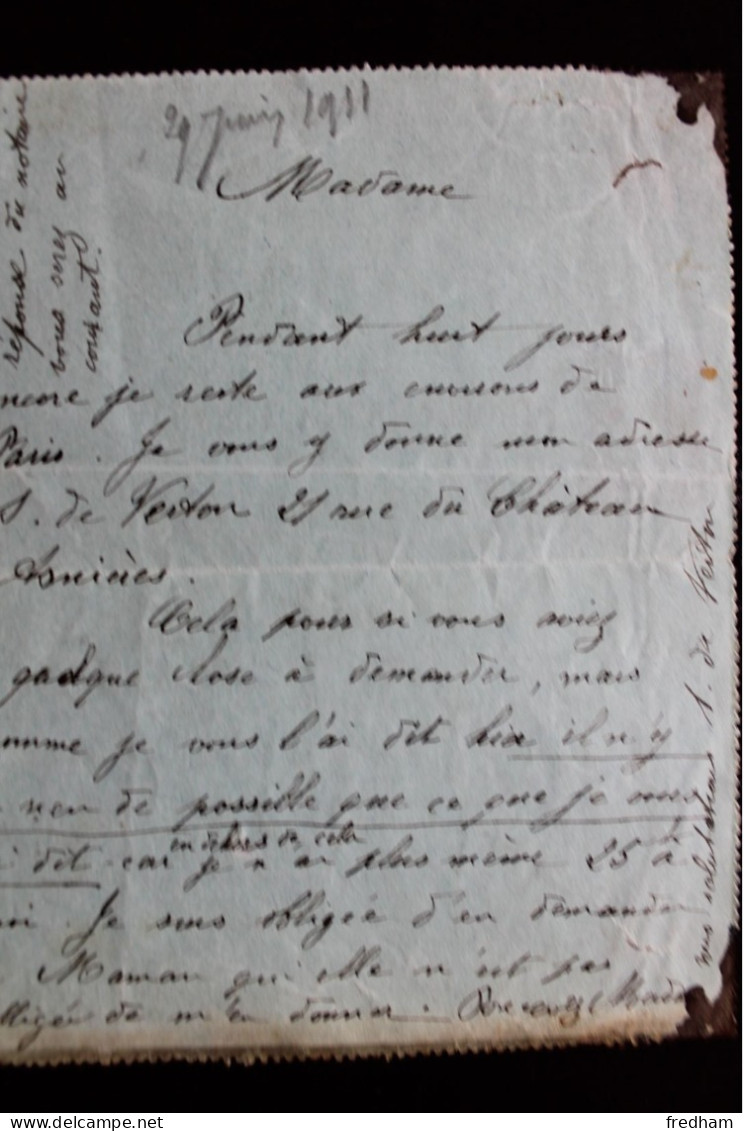 29 juin 1911
Madame
Pendant huit jours
ncore je reste aux environs de
Paris. Je vous y donne mon adresse
S. de Verton 21 rue du Château
Asnières.
Cela pour si vous aviez
quelque chose à demander, mais
omme je vous l'ai dit hier il n'y
rien de possible que ce que je vous
i dit car en dehors de cela je n'ai plus même 25 à
oi. Je suis obligée d'en demander
Maman qui elle n'est pas
obligée de m'en donner. Recevez Mada
mes salutations S. de Verton
réponse du notaire
vous serez au
courant.
fredham